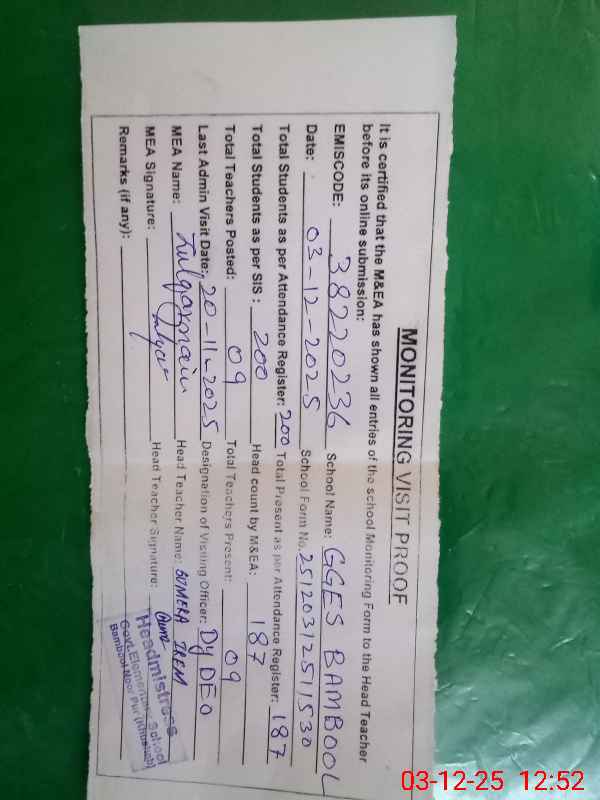 MONITORING VISIT PROOF
It is certified that the M&EA has shown all entries of the school Monitoring Form to the Head Teacher
before its online submission:
EMISCODE: 38220236 School Name: GGES BAMBOOL
Date: 03-12-2025 School Form No. 25120312511530
Total Students as per Attendance Register: 200 Total Present as per Attendance Register: 187
Total Students as per SIS : 200 Head count by M&EA: 187
Total Teachers Posted: 09 Total Teachers Present: 09
Last Admin Visit Date: 20-11-2025 Designation of Visiting Officer: Dy DEO
MEA Name: Zulqarnain Head Teacher Name: SUMERA IREM
MEA Signature: Head Teacher Signature:
Remarks (if any):
Headmistress
Govt. Elementary School
Bambool Noor Pur (Khushab)
03-12-25 12:52